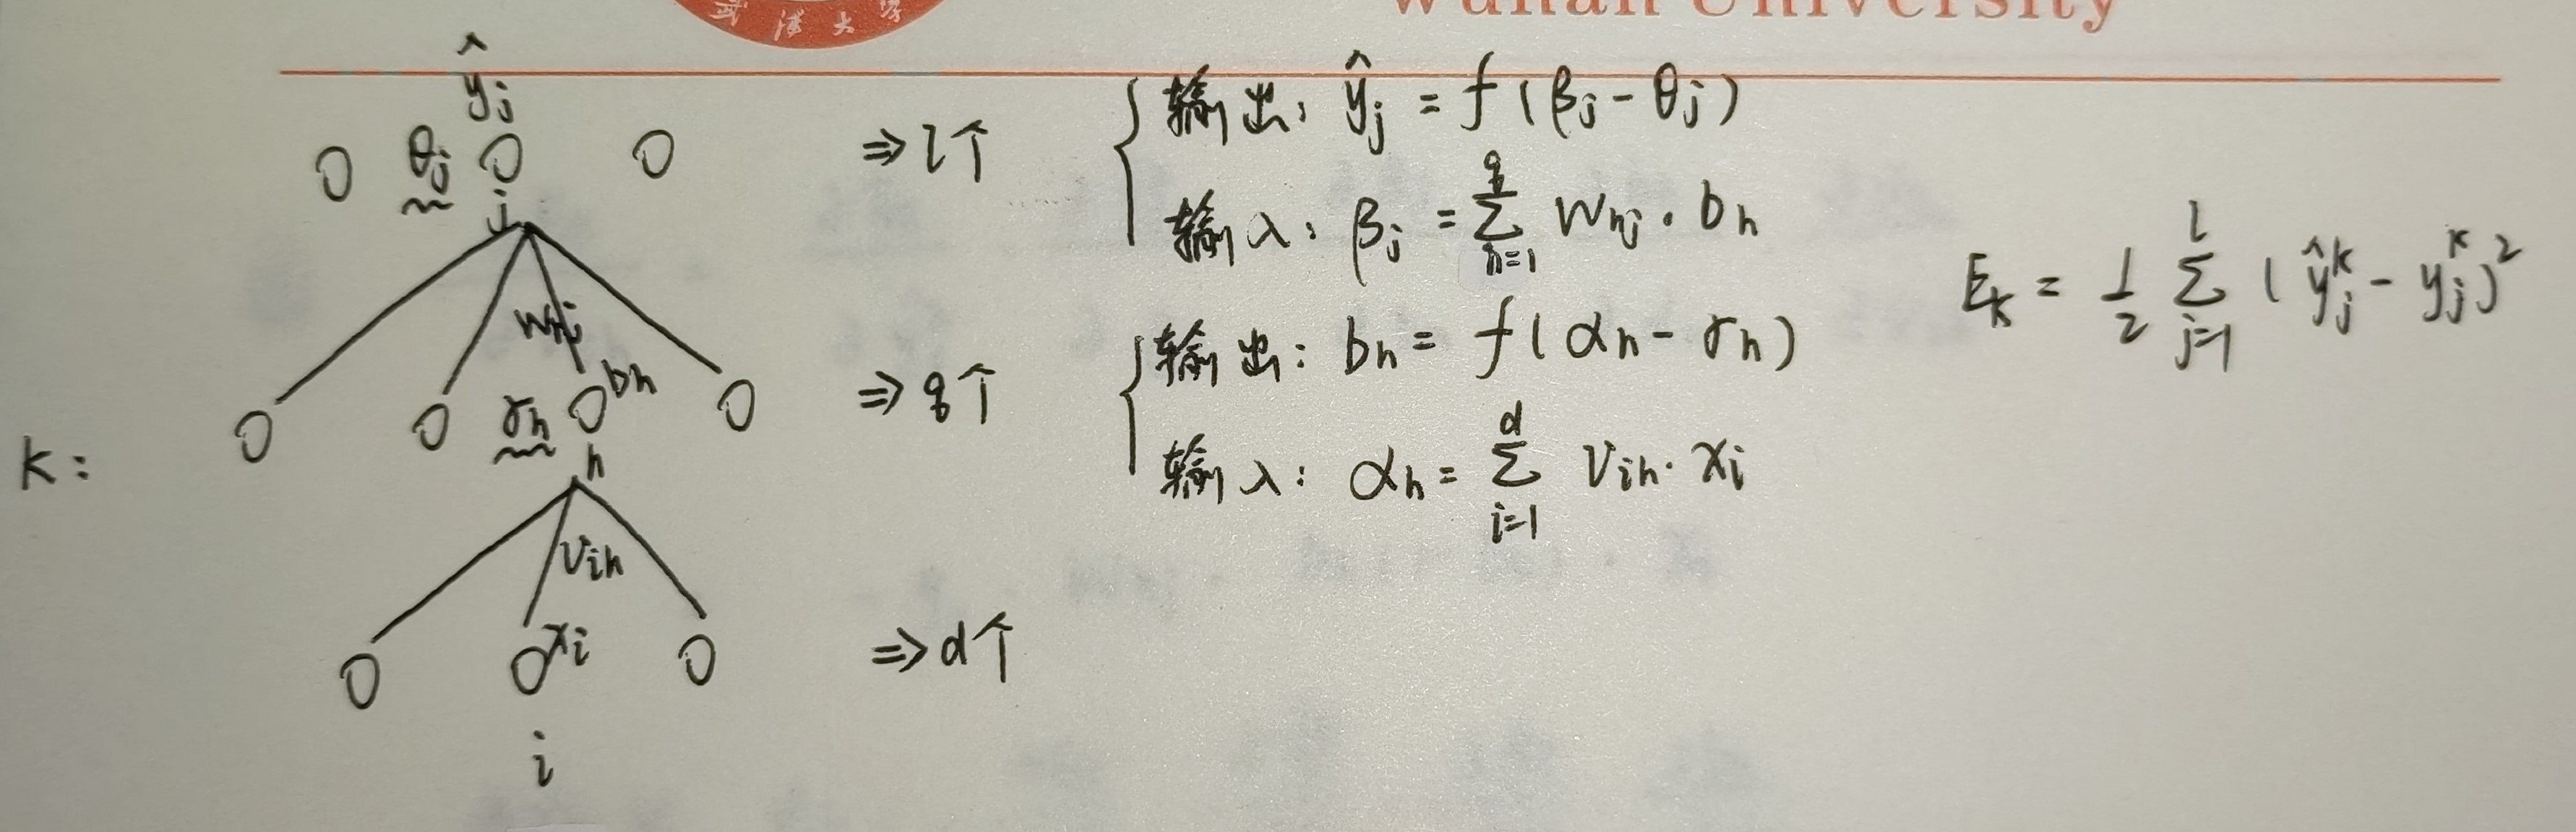 武漢大学
Wuhan University
ŷj
θj
j
⇒ l个
输出: ŷj = f(βj - θj)
输入: βj = Σ_{h=1}^{q} whj · bh
Ek = 1/2 Σ_{j=1}^{l} (ŷj^k - yj^k)²
whj
bh
γh
h
⇒ q个
输出: bh = f(αh - γh)
输入: αh = Σ_{i=1}^{d} vih · xi
k:
vih
xi
⇒ d个
i